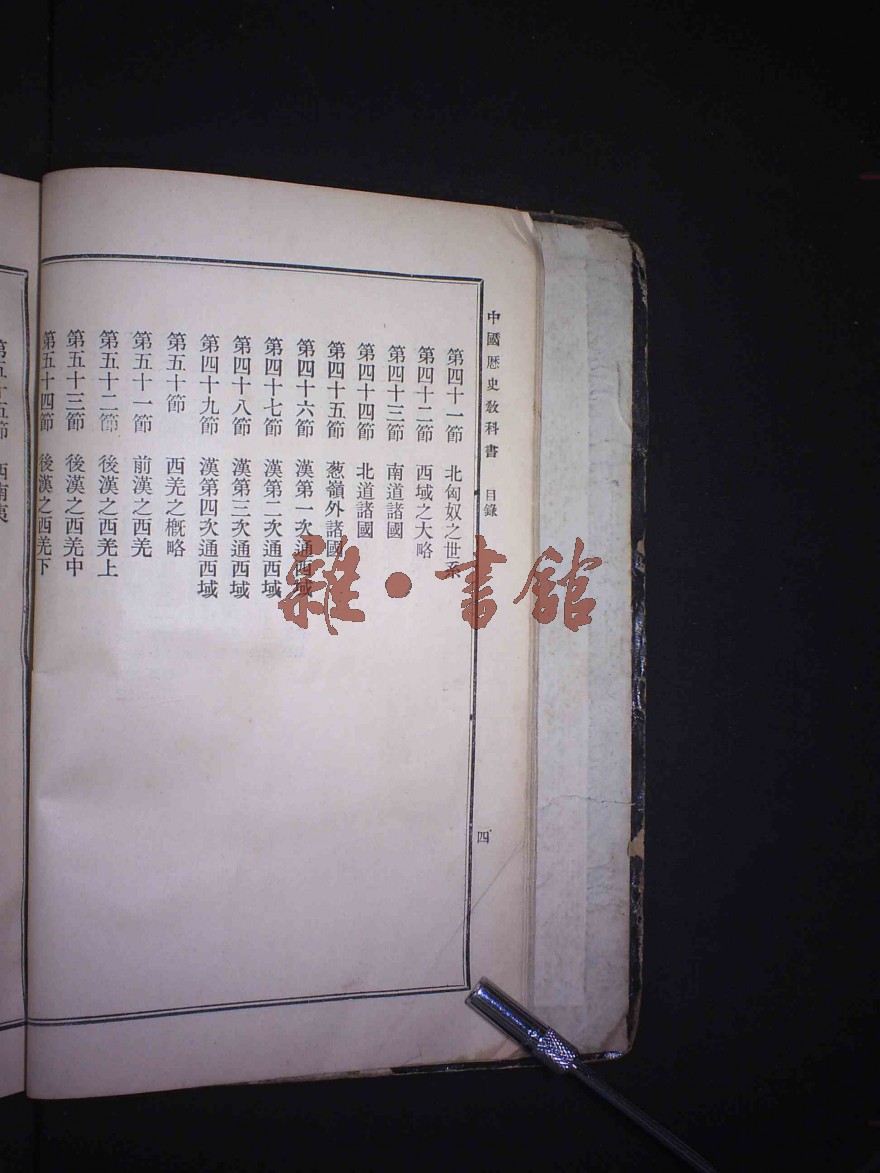 中國歷史教科書　目錄
四
第四十一節　北匈奴之世系
第四十二節　西域之大略
第四十三節　南道諸國
第四十四節　北道諸國
第四十五節　葱嶺外諸國
第四十六節　漢第一次通西域
第四十七節　漢第二次通西域
第四十八節　漢第三次通西域
第四十九節　漢第四次通西域
第五十節　西羌之概略
第五十一節　前漢之西羌
第五十二節　後漢之西羌上
第五十三節　後漢之西羌中
第五十四節　後漢之西羌下
第五十五節　西南夷
雜·書館